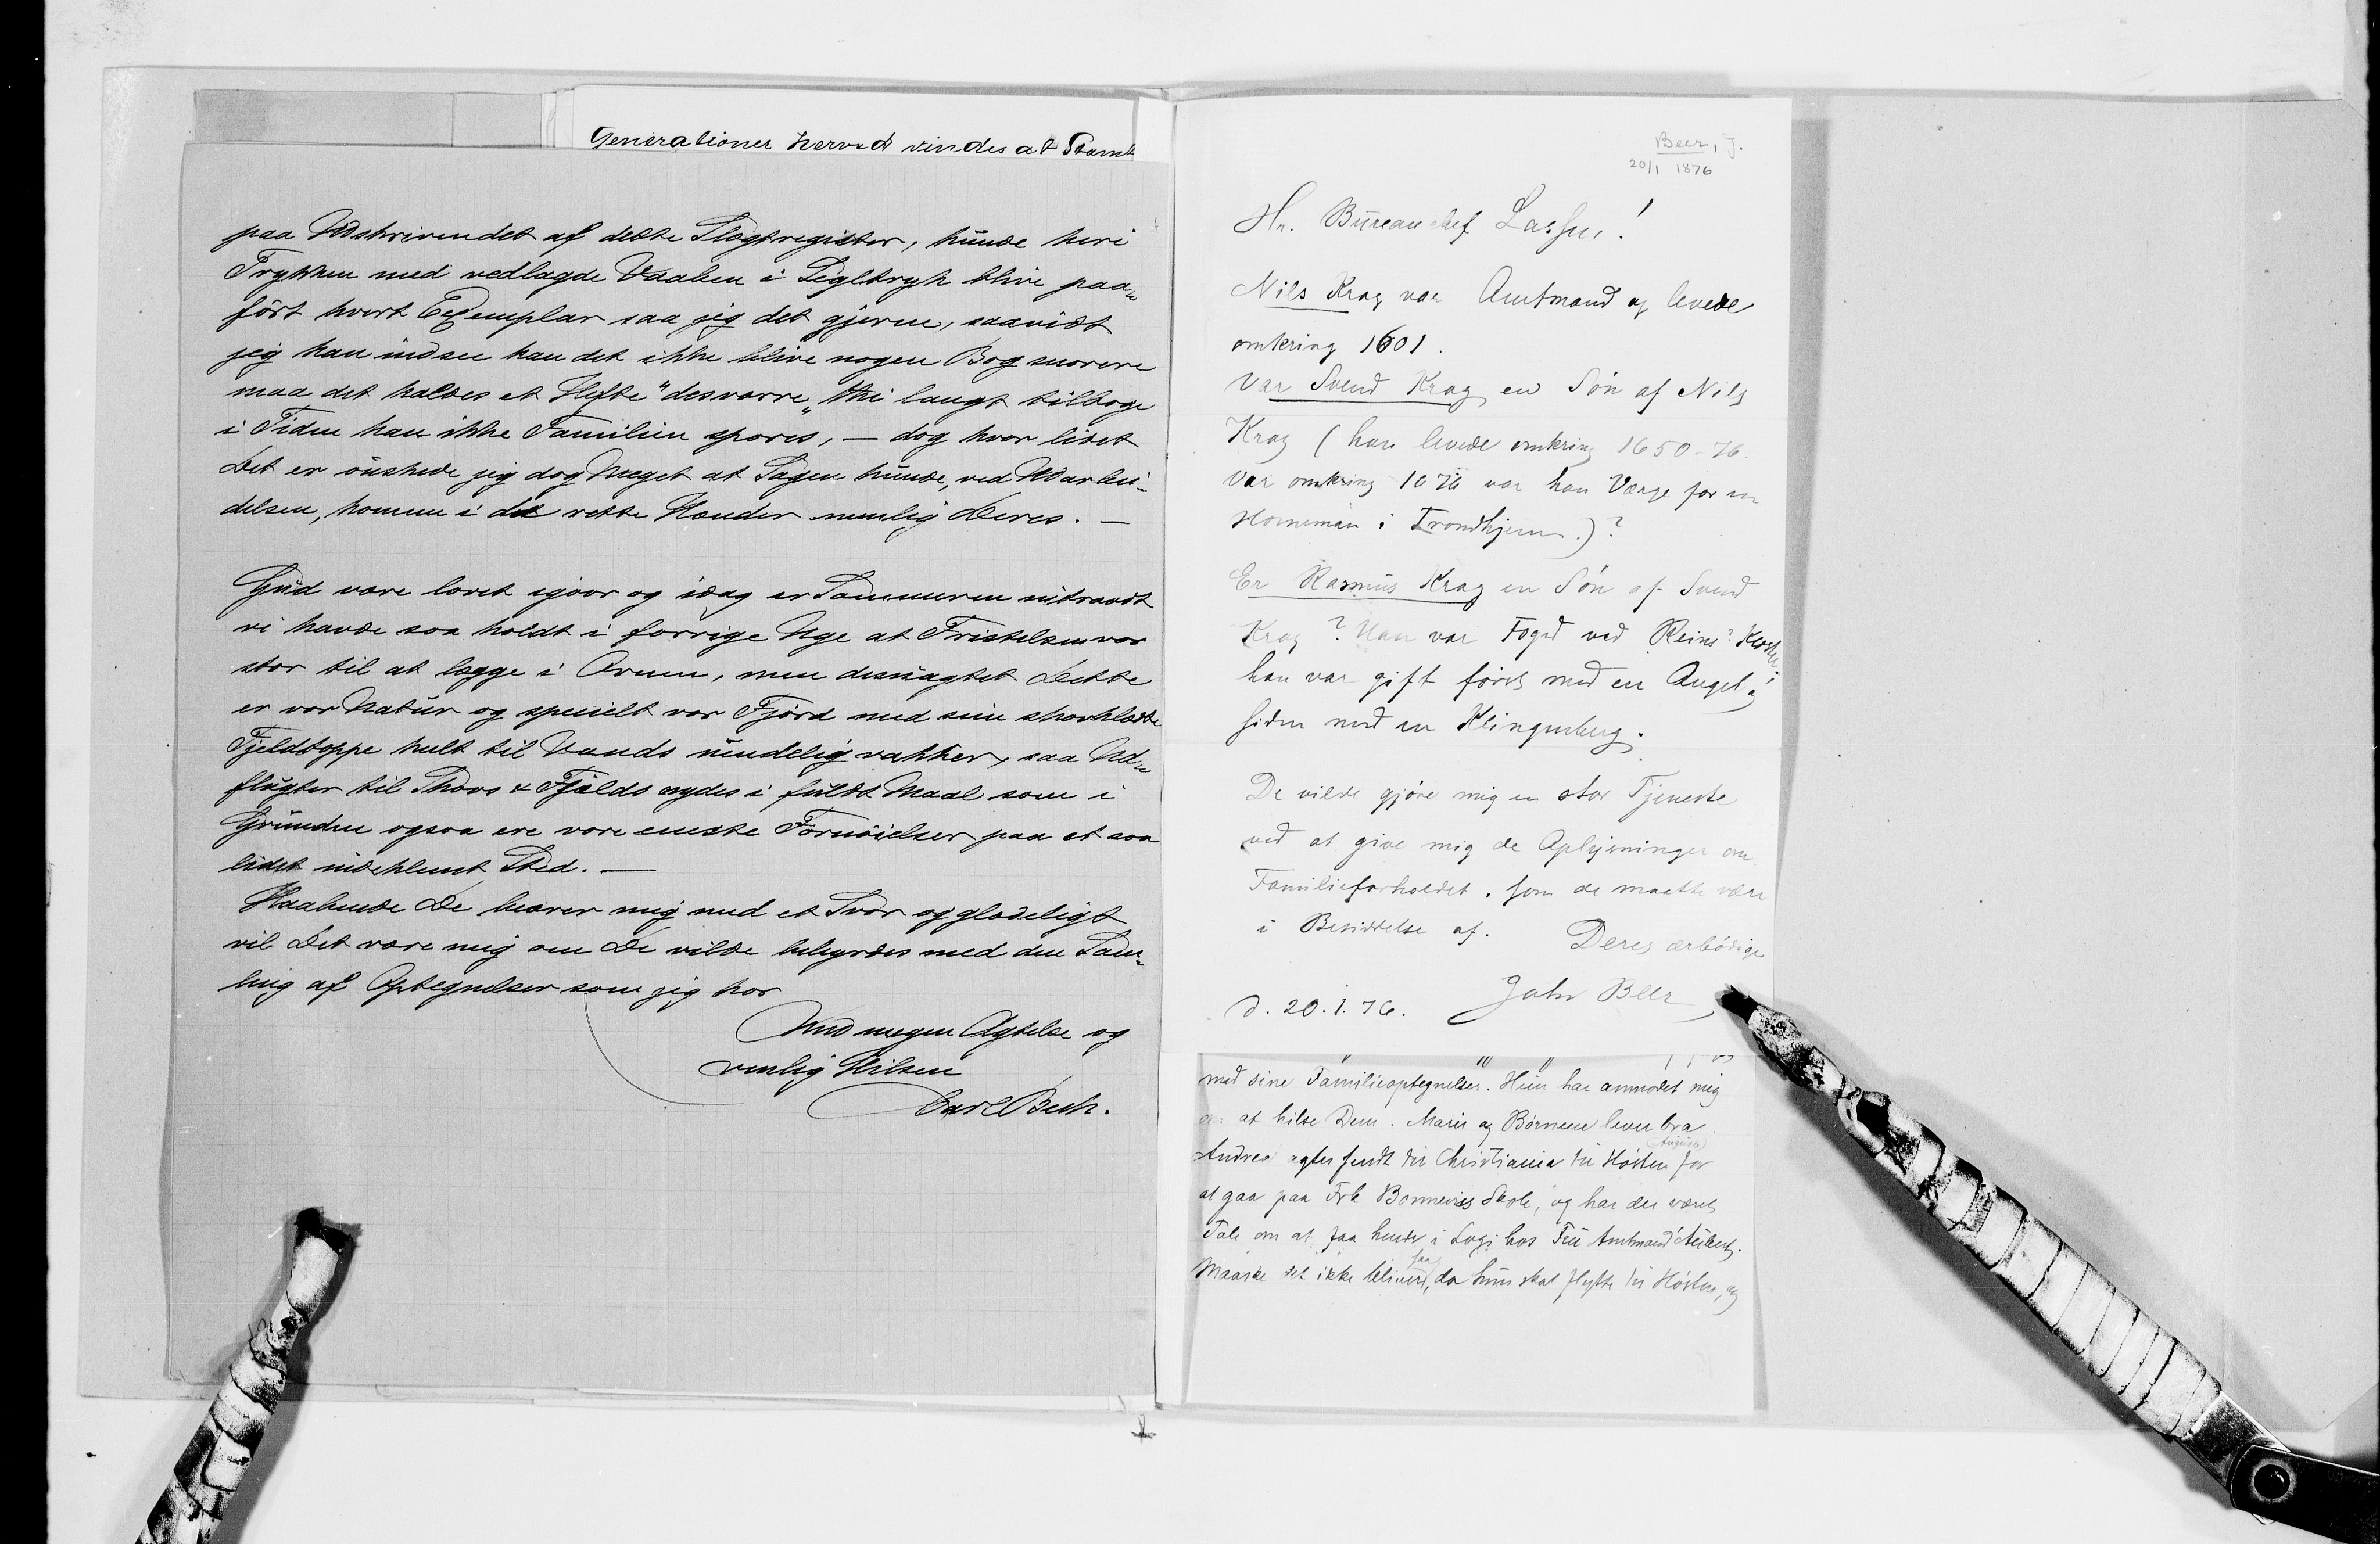 Generationer herved vindes at Stamt
paa Udskrivendet af dette Slægtregister, kunde heri
Trykken med vedlagde Vaaben i Segltryk blive paa„
fört hvert Exemplar saa jeg det gjerne, saavidt
jeg kan indsee kan det ikke blive nogen Bog snarere
maa det kaldes et Hefte "desværre„ thi langt tilbage
i Tiden kan ikke Familien spores, — dog hvor lidet
Det er önskede jeg dog Meget at Sagen kunde, ved Udarbei„
delsen, komme i de rette Hænder nemlig Deres. —
Gud være lovet igaar og idag er Sommeren nitraadt
vi havde saa koldt i forrige Uge at Fristelsen var
stor til at lægge i Ovnen, men desuagtet Dette
er vor Natur og specielt vor Fjord med sine skovklædte
Fjeldtoppe helt til Vands uendelig vakker, saa Ud„
flugter til Skovs & Fjelds nydes i fuldt Maal som i
Grunden ogsaa ere vore eneste Fornöielser paa et saa
lidet indeklemt Sted. —
Haabende De beærer mig med et Svar og gladeligt
vil Det være mig om De vilde bebyrdes med den Sam„
ling af Optegnelser som jeg har
Med megen Agtelse og
venlig Hilsen
Carl Bech.
Beer, J.
20/1 1876
Hr. Bureauchef Lassen!
Nils Krag var Amtmand og levede
omkring 1601.
Var Svend Krag en Sön af Nils
Krag (han levede omkring 1650-76.
Var omkring 1676 var han Værge for en
Horneman i Trondhjem.)?
Er Rasmus Krag en Sön af Svend
Krag? Han var Foged ved Reins? Kloster
han var gift först med en Angel
siden med en Klingenberg.
De vilde gjöre mig en stor Tjeneste
ved at give mig de Oplysninger om
Familieforholdet, som de maatte være
i Besiddelse af. Deres ærbödige
d. 20.1.76. John Beer
med sine Familieoptegnelser. Hun har anmodet mig
at hilse Dem. Marie og Börnene lever bra
(August)
Andrea agtes sendt til Christiania til Hösten for
at gaa paa Frk Bonnevies Skole, og har der været
Tale om at faa hende i Logi hos Fru Amtmand Aubert.
saa
Maaske det ikke bliver, da hun skal flytte til Hösten, og